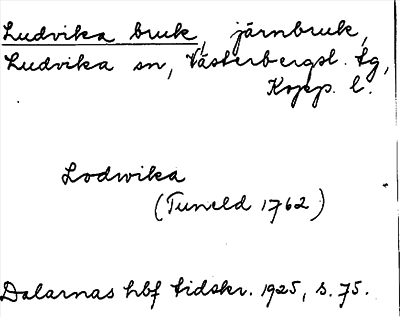 Ludvika bruk, järnbruk,
Ludvika sn, Västerbergsl. tg,
Kopp. l.
Lodwika
(Tuneld 1762)
Dalarnas hbf tidskr. 1925, s. 75.